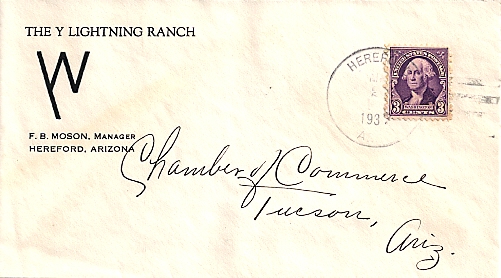 THE Y LIGHTNING RANCH
F. B. MOSON, MANAGER
HEREFORD, ARIZONA
HEREF
193
A
3 3
WASHINGTON
CENTS
Chamber of Commerce
Tucson,
Ariz.